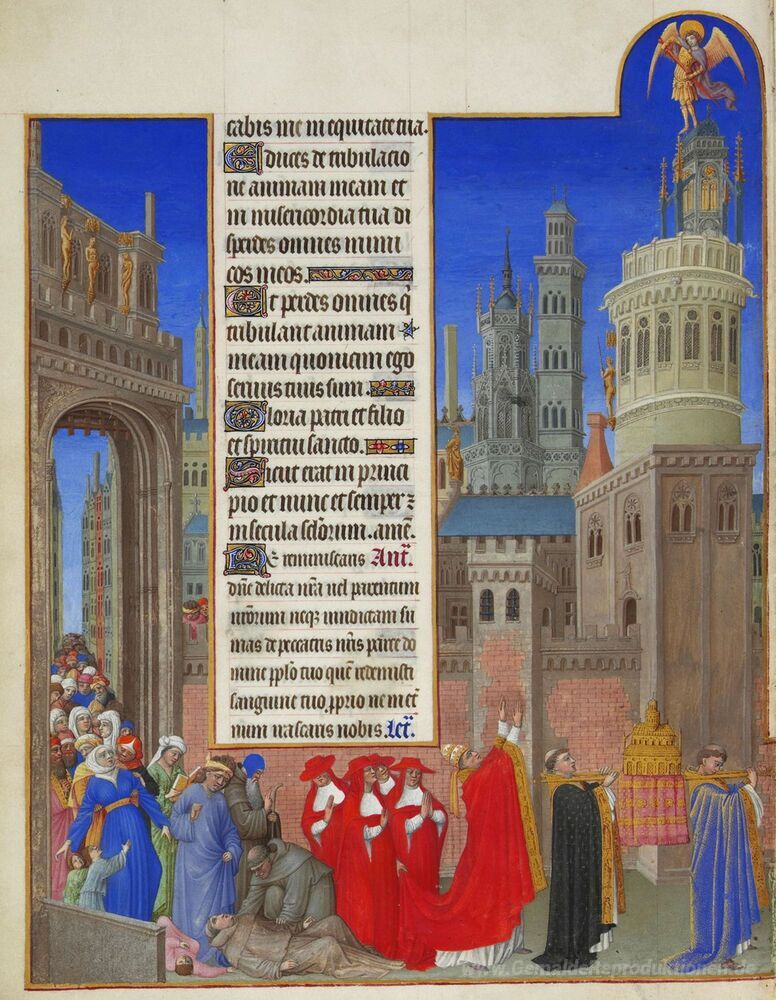 cabis me in equitate tua.
Educes de tribulacio
ne animam meam et
in misericordia tua di
sperdes omnes inimi
cos meos.
Et perdes omnes q̄
tribulant animam
meam quoniam ego
servus tuus sum.
Gloria patri et filio
et spiritui sancto.
Sicut erat in princi
pio et nunc et semper ⁊
in secula sclōrum. amē.
Ne reminiscaris Ant.
dñe delicta nr̄a vel parentum
nr̄orum neq; vindictam su
mas de peccatis nr̄is parce do
mine pplō tuo quē redemisti
sanguine tuo pprio ne in et
num irascaris nobis. Let.
www.Gemaeldereproduktionen.de